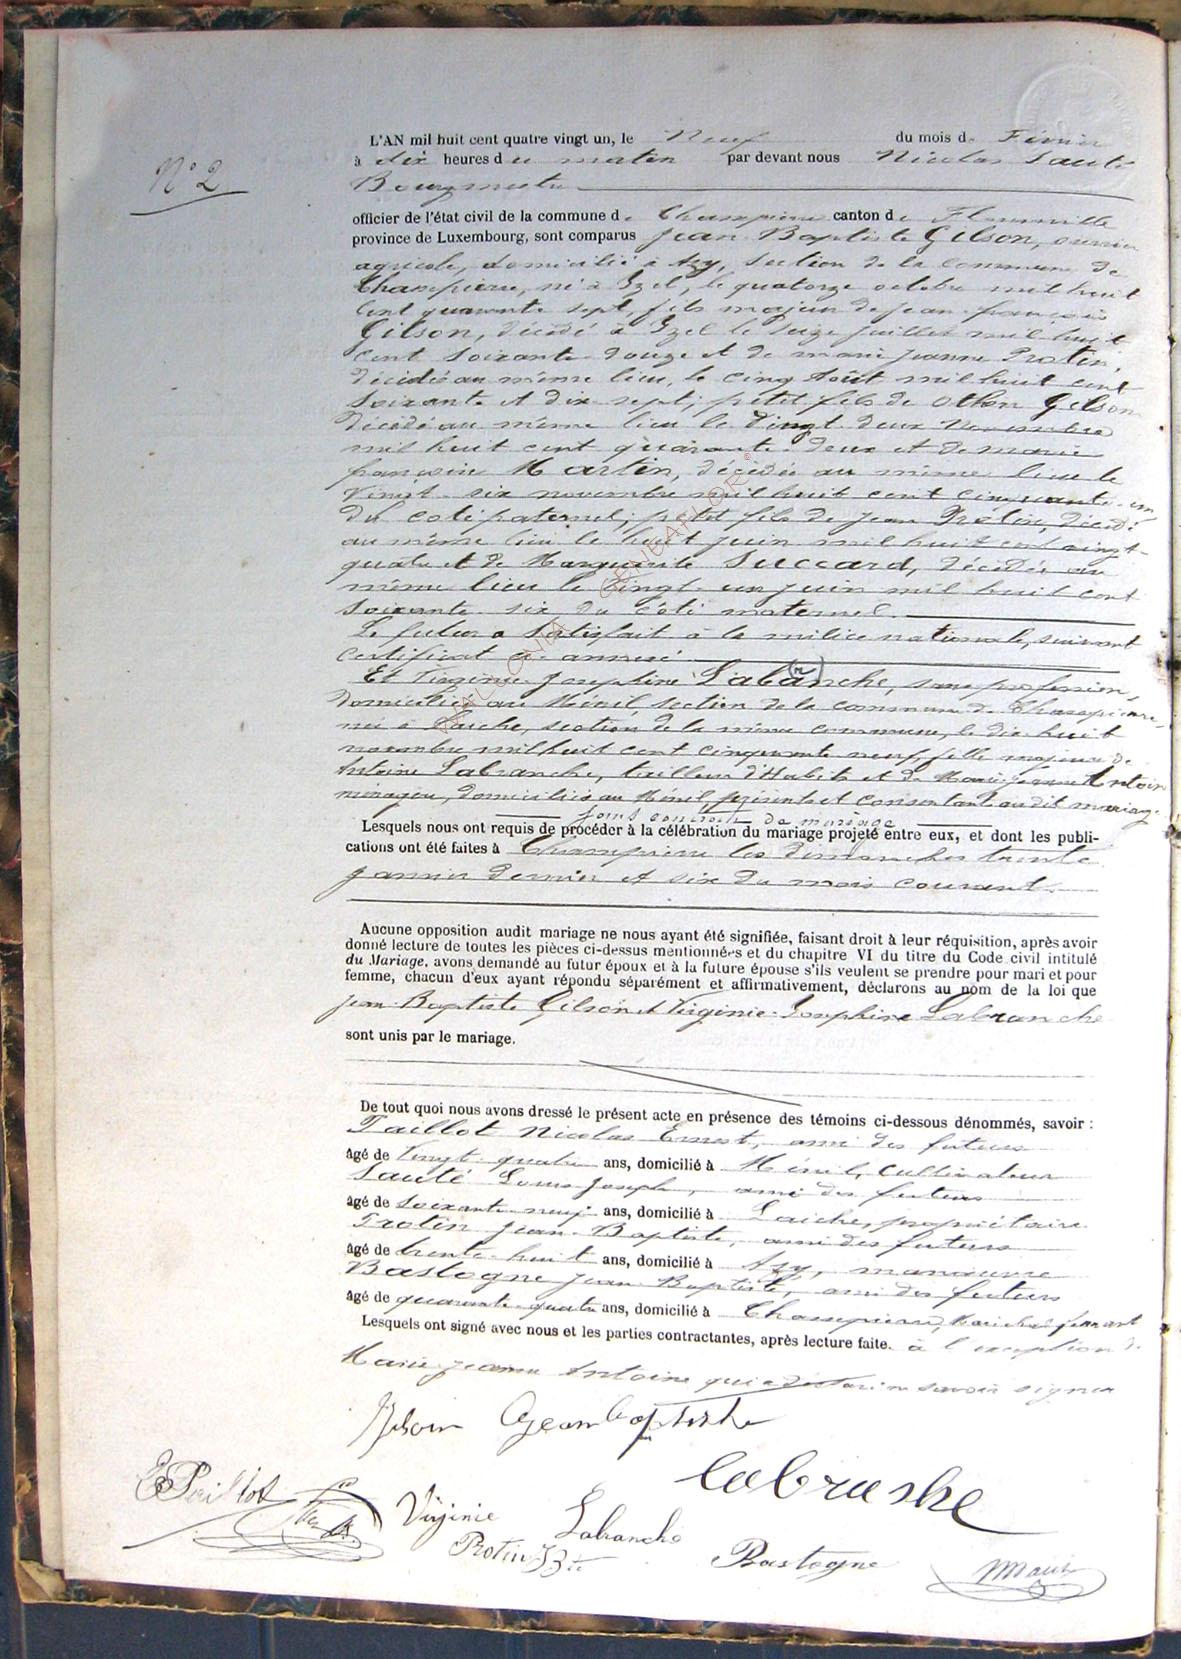 L'AN mil huit cent quatre vingt un, le Neuf du mois de Février
à dix heures du matin par devant nous Nicolas Sauté
N° 2
Bourgmestre
officier de l'état civil de la commune de Chassepierre canton de Florenville
province de Luxembourg, sont comparus Jean Baptiste Gilson, ouvrier
agricole, domicilié à Azy, section de la commune de
Chassepierre, né à Izel, le quatorze octobre mil huit
cent quarante sept, fils majeur de jean françois
Gilson, décédé à Izel le seize juillet mil huit
cent soixante douze et de marie jeanne Protin,
décédée au même lieu, le cinq Août mil huit cent
soixante et dix sept; petit fils de Othon Gilson
décédé au même lieu le vingt deux Novembre
mil huit cent quarante deux et de marie
françoise Martin, décédée au même lieu le
vingt-six novembre mil huit cent cinquante un
du coté paternel; petit fils de jean Protin, décédé
au même lieu le huit juin mil huit cent vingt-
quatre et de Marguerite Succard, décédée au
même lieu le vingt un juin mil huit cent
soixante-six du côté maternel.
Le futur a satisfait à la milice nationale, suivant
certificat ci-annexé
Et Virginie Joséphine Labanche, (r) sans profession,
domiciliée au Ménil, section de la commune de Chassepierre,
née à Laiche, section de la même commune, le dix huit
novembre mil huit cent cinquante neuf, fille majeure de
Antoine Labranche, tailleur d'Habits et de Marie-jeanne Antoine
ménagère, domiciliés au Ménil, présents et consentant au dit mariage
sans contrat de mariage
Lesquels nous ont requis de procéder à la célébration du mariage projeté entre eux, et dont les publi-
cations ont été faites à Chassepierre les dimanches trente
janvier dernier et six du mois courant.
Aucune opposition audit mariage ne nous ayant été signifiée, faisant droit à leur réquisition, après avoir
donné lecture de toutes les pièces ci-dessus mentionnées et du chapitre VI du titre du Code civil intitulé
du Mariage, avons demandé au futur époux et à la future épouse s'ils veulent se prendre pour mari et pour
femme, chacun d'eux ayant répondu séparément et affirmativement, déclarons au nom de la loi que
Jean-Baptiste Gilson et Virginie-Josephine Labranche
sont unis par le mariage.
De tout quoi nous avons dressé le présent acte en présence des témoins ci-dessous dénommés, savoir :
Paillot Nicolas Ernest, ami des futurs
âgé de vingt-quatre ans, domicilié à Ménil, Cultivateur
Sauté Louis Joseph, ami des futurs
âgé de soixante-neuf ans, domicilié à Laiche, propriétaire
Protin Jean-Baptiste, ami des futurs
âgé de trente-huit ans, domicilié à Azy, manœuvre
Bastogne Jean-Baptiste, ami des futurs
âgé de quarante-quatre ans, domicilié à Chassepierre, Maréchal ferrant
Lesquels ont signé avec nous et les parties contractantes, après lecture faite. à l'exception de
Marie-jeanne Antoine qui a déclaré ne savoir signer
Gilson Jean baptiste
E Paillot
labrashe
Virginie Labranche
Protin JBte
Bastogne
WALLONIA GENEAFLOR©